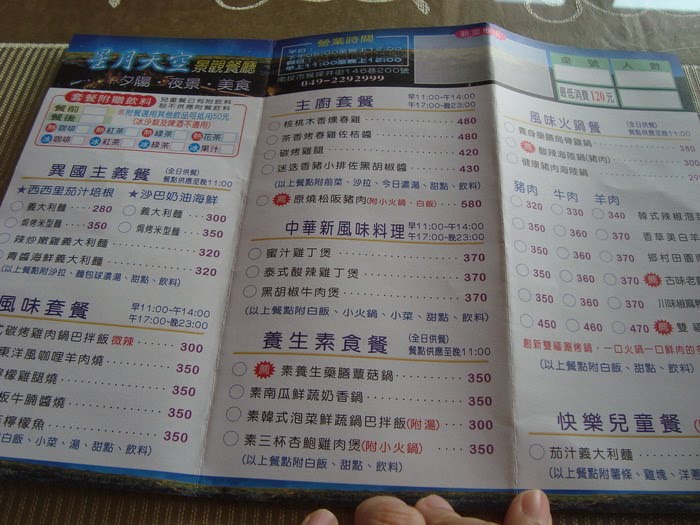 星月天空
景觀餐廳
夕陽．夜景．美食
套餐附贈飲料
餐前
餐後
咖啡 紅茶 綠茶 花茶
咖啡 紅茶 綠茶 果汁
異國主義餐 (全日供餐)
餐點供應至晚11:00
★西西里茄汁培根
義大利麵 280
焗烤米型麵 350
★沙巴奶油海鮮
義大利麵 300
焗烤米型麵 350
辣炒嫩雞義大利麵 320
青醬海鮮義大利麵 320
(以上餐點附沙拉、麵包球濃湯、甜點、飲料)
風味套餐 早11:00~午14:00
午17:00~晚23:00
碳烤雞肉鍋巴拌飯 微辣 300
東洋風咖哩羊肉燒 350
檸檬雞腿燒 350
板牛腩醬燒 350
檸檬魚 350
白飯、小菜、湯、甜點、飲料)
營業時間
049-2292999
主廚套餐 早11:00~午14:00
午17:00~晚23:00
核桃木香燻春雞 480
茶香烤春雞佐桔醬 480
碳烤雞腿 420
迷迭香豬小排佐黑胡椒醬 430
(以上餐點附前菜、沙拉、今日濃湯、甜點、飲料)
原燒松阪豬肉(附小火鍋、白飯) 580
中華新風味料理 早11:00~午14:00
午17:00~晚23:00
蜜汁雞丁煲 370
泰式酸辣雞丁煲 370
黑胡椒牛肉煲 370
(以上餐點附白飯、小火鍋、小菜、甜點、飲料)
養生素食餐 (全日供餐)
餐點供應至晚11:00
素養生藥膳蕈菇鍋 350
素南瓜鮮蔬奶香鍋 350
素韓式泡菜鮮蔬鍋巴拌飯(附湯) 300
素三杯杏鮑雞肉煲(附小火鍋) 350
(以上餐點附白飯、甜點、飲料)
桌號 人數
最低消費120元
風味火鍋餐 (全日供餐)
養身藥膳烏骨雞鍋 380
酸辣海陸鍋(豬肉)
健康豬肉海陸鍋
豬肉 牛肉 羊肉
320 330 340 韓式辣椒泡
350 360 370 香草美白羊
350 360 370 鄉村田園南
350 360 370 古味老
350 360 370 川味椒麻
450 460 470 雙
快樂兒童餐
茄汁義大利麵
(以上餐點附薯條、雞塊、洋蔥